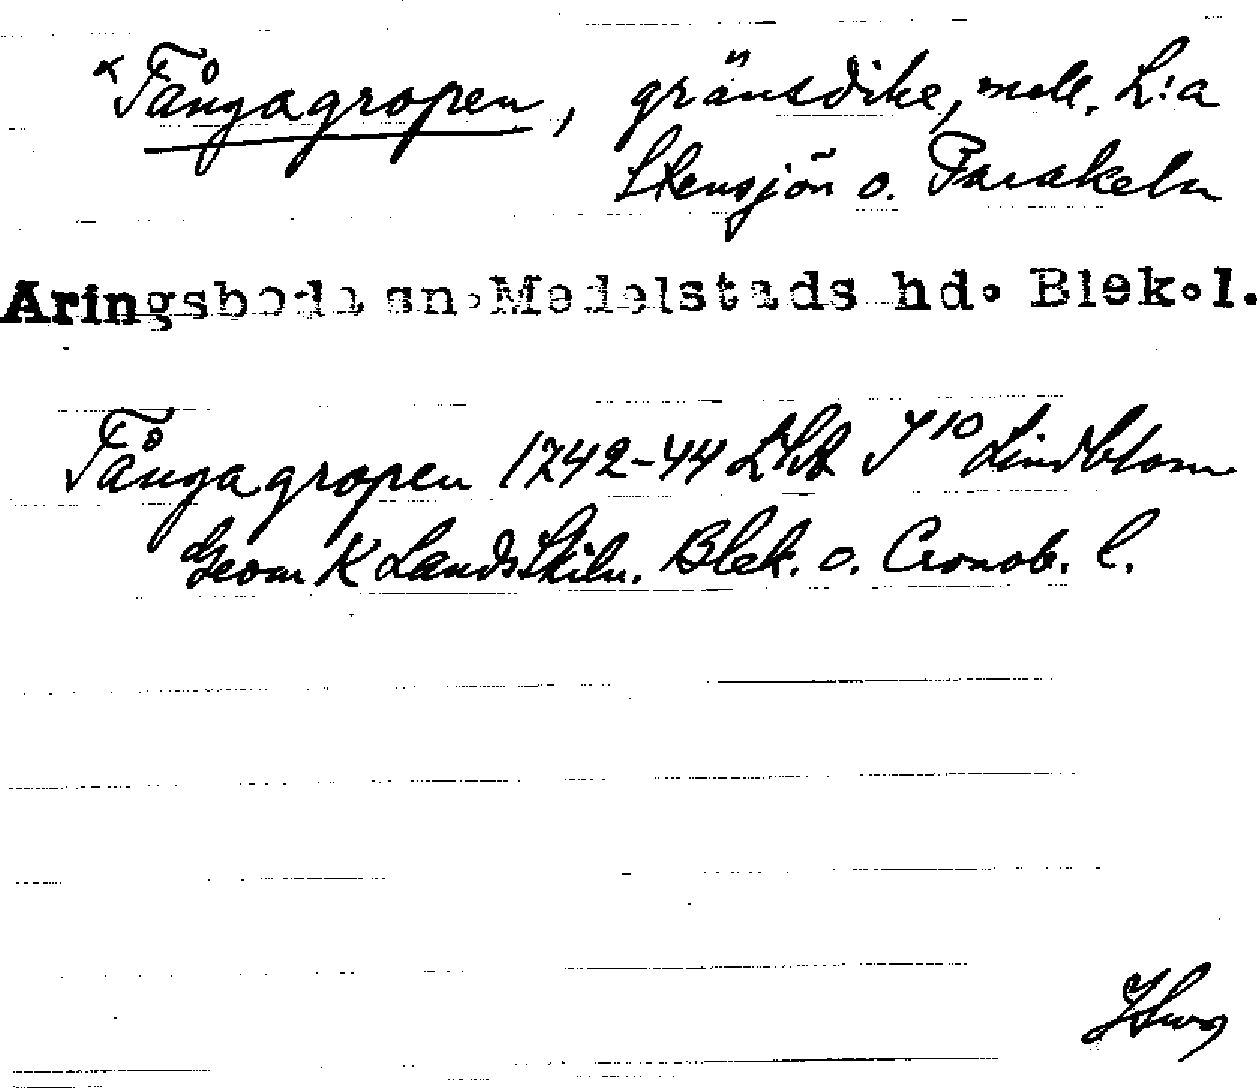 × Tångagropen, gränsdike, mell. L:a
Stensjön o. Parakeln
Aringsboda sn. Medelstads hd. Blek.l.
Tångagropen 1742-44 LSA J 10 Lindblom
Geom K Lands Skiln. Blek. o. Cronob. l.